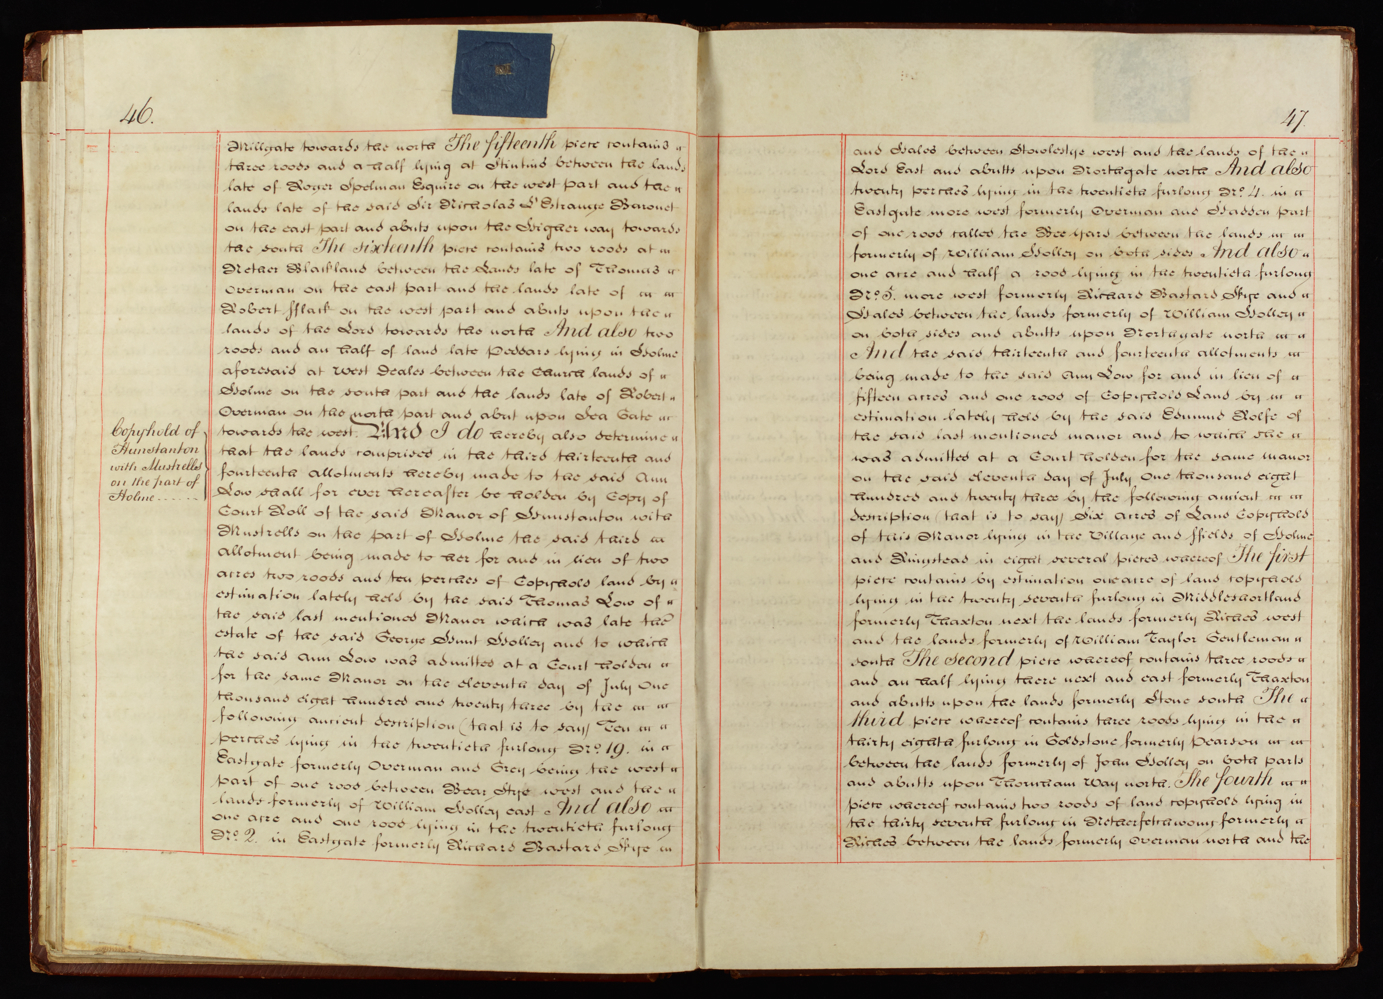 46.
Millgate towards the north The fifteenth piece contains
three roods and a half lying at Stintins between the lands
late of Roger Spelman Esquire on the west part and the
lands late of the said Sir Nicholas L'Estrange Baronet
on the east part and abuts upon the Higher way towards
the south The sixteenth piece contains two roods at
Nether Blackland between the Lands late of Thomas
Overman on the east part and the lands late of
Robert fflack on the west part and abuts upon the
lands of the Lord towards the north And also two
roods and an half of land late Peddars lying in Holme
aforesaid at West Deales between the Church lands of
Holme on the south part and the lands late of Robert
Overman on the north part and abut upon Sea Gate
towards the west. And I do hereby also determine
that the lands comprised in the third thirteenth and
fourteenth allotments hereby made to the said Ann
Low shall for ever hereafter be holden by Copy of
Court Roll of the said Manor of Hunstanton with
Mustrells on the part of Holme the said third
allotment being made to her for and in lieu of two
acres two roods and ten perches of Copyhold land by
estimation lately held by the said Thomas Low of
the said last mentioned Manor which was late the
estate of the said George Hunt Holley and to which
the said Ann Low was admitted at a Court holden
for the same Manor on the eleventh day of July One
thousand eight hundred and twenty three by the
following ancient description (that is to say) Ten
perches lying in the twentieth furlong No. 19. in
Eastgate formerly Overman and Grey being the west
part of one rood between Bear Stye west and the
lands formerly of William Holley east And also
one acre and one rood lying in the twentieth furlong
No. 2. in Eastgate formerly Richard Bastard Skye
Copyhold of
Hunstanton
with Mustrells
on the part of
Holme......
47
and Hales between Stowlestye west and the lands of the
Lord East and abutts upon Northgate north And also
twenty perches lying in the twentieth furlong No. 4. in
Eastgate more west formerly Overman and Hadden part
of one rood called the Bee yard between the lands
formerly of William Holley on both sides And also
one acre and half a rood lying in the twentieth furlong
No. 5. more west formerly Richard Bastard Skye and
Hales between the lands formerly of William Holley
on both sides and abutts upon Northgate north
And the said thirteenth and fourteenth allotments
being made to the said Ann Low for and in lieu of
fifteen acres and one rood of Copyhold Land by
estimation lately held by the said Edmund Rolfe of
the said last mentioned manor and to which she
was admitted at a Court holden for the same manor
on the said eleventh day of July One thousand eight
hundred and twenty three by the following ancient
description (that is to say) Six acres of Land Copyhold
of this Manor lying in the Village and ffields of Holme
and Ringstead in eight several pieces whereof The first
piece contains by estimation one acre of land copyhold
lying in the twenty seventh furlong in Middleshortland
formerly Thaxton next the lands formerly Riches west
and the lands formerly of William Taylor Gentleman
south The second piece whereof contains three roods
and an half lying there next and east formerly Thaxton
and abutts upon the lands formerly Stone south The
third piece whereof contains three roods lying in the
thirty eighth furlong in Goldstone formerly Pearson
between the lands formerly of John Holley on both parts
and abutts upon Thornham Way north. The fourth
piece whereof contains two roods of land copyhold lying in
the thirty seventh furlong in formerly
Riches between the lands formerly Overman north and the